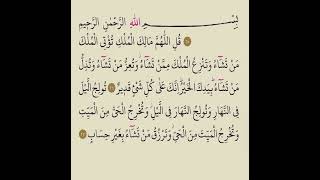 بِسْمِ اللّٰهِ الرَّحْمٰنِ الرَّحِيمِ
قُلِ اللّٰهُمَّ مَالِكَ الْمُلْكِ تُؤْتِي الْمُلْكَ
مَنْ تَشَاءُ وَتَنْزِعُ الْمُلْكَ مِمَّنْ تَشَاءُ وَتُعِزُّ مَنْ تَشَاءُ وَتُذِلُّ
مَنْ تَشَاءُ بِيَدِكَ الْخَيْرُ اِنَّكَ عَلٰى كُلِّ شَيْءٍ قَدِيرٌ ٢٦ تُولِجُ الَّيْلَ
فِي النَّهَارِ وَتُولِجُ النَّهَارَ فِي الَّيْلِ وَتُخْرِجُ الْحَيَّ مِنَ الْمَيِّتِ
وَتُخْرِجُ الْمَيِّتَ مِنَ الْحَيِّ وَتَرْزُقُ مَنْ تَشَاءُ بِغَيْرِ حِسَابٍ ٢٧